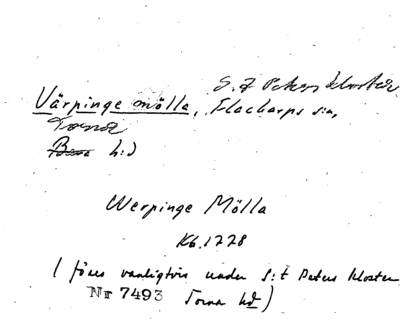 S:t Peters kloster
Värpinge mölla, Flackarps s:n,
Torna
Bara h:d
Werpinge Mölla
Kb. 1728
( föres vanligtvis under S:t Peters Kloster
Nr 7493 Torna hd )